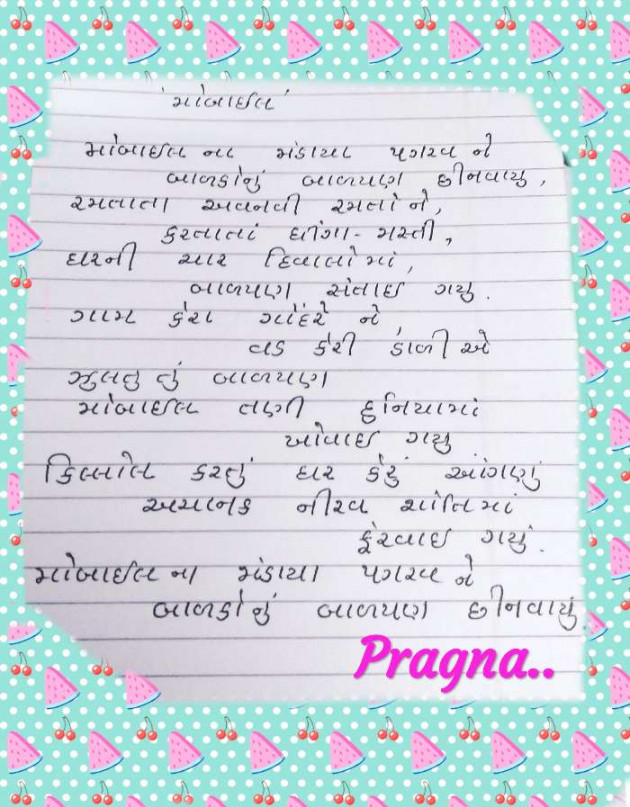 'મોબાઈલ'
મોબાઈલ ના મંડાયા પગરવ ને
બાળકોનું બાળપણ છીનવાયુ,
રમતાતા અવનવી રમતો ને,
કરતાતાં ધીંગા-મસ્તી,
ઘરની ચાર દિવાલોમાં,
બાળપણ સંતાઈ ગયુ.
ગામ કેરા ગોંદરે ને
વડ કેરી ડાળીએ
ઝુલતુ તું બાળપણ
મોબાઈલ તણી દુનિયામાં
ખોવાઈ ગયુ
કિલ્લોલ કરતું ઘર કેરું આંગણું
અચાનક નીરવ શાંતિમાં
ફેરવાઈ ગયું.
મોબાઈલ ના મંડાયા પગરવ ને
બાળકોનું બાળપણ છીનવાયું.
Pragna..